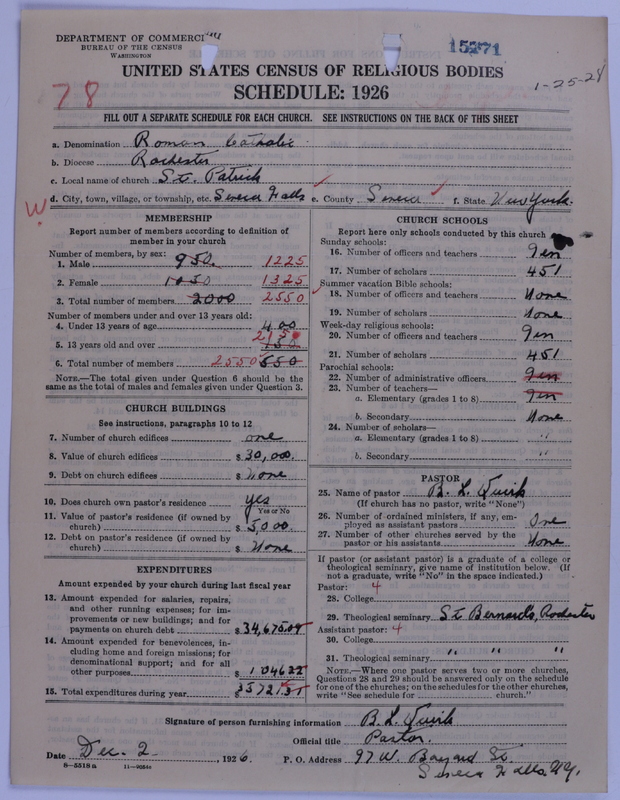 DEPARTMENT OF COMMERCE
BUREAU OF THE CENSUS
WASHINGTON
15271
UNITED STATES CENSUS OF RELIGIOUS BODIES
SCHEDULE: 1926
1-25-28
78
FILL OUT A SEPARATE SCHEDULE FOR EACH CHURCH. SEE INSTRUCTIONS ON THE BACK OF THIS SHEET
a. Denomination Roman Catholic
b. Diocese Rochester
c. Local name of church St. Patrick
d. City, town, village, or township, etc. Seneca Falls e. County Seneca f. State New York.
W
MEMBERSHIP
Report number of members according to definition of
member in your church
Number of members, by sex:
1. Male 950. 1225
2. Female 1050 1325
3. Total number of members 2000 2550
Number of members under and over 13 years old:
4. Under 13 years of age 400
5. 13 years old and over 150 2150
6. Total number of members 2550 550
NOTE.—The total given under Question 6 should be the
same as the total of males and females given under Question 3.
CHURCH BUILDINGS
See instructions, paragraphs 10 to 12
7. Number of church edifices one
8. Value of church edifices $ 30,000.
9. Debt on church edifices $ None
10. Does church own pastor's residence yes
Yes or No
11. Value of pastor's residence (if owned by
church) $ 5000
12. Debt on pastor's residence (if owned by
church) $ None
EXPENDITURES
Amount expended by your church during last fiscal year
13. Amount expended for salaries, repairs,
and other running expenses; for im-
provements or new buildings; and for
payments on church debt $ 34,675.09
14. Amount expended for benevolences, in-
cluding home and foreign missions; for
denominational support; and for all
other purposes $ 1046 22
15. Total expenditures during year $ 35721.31
CHURCH SCHOOLS
Report here only schools conducted by this church
Sunday schools:
16. Number of officers and teachers Ten
17. Number of scholars 451
Summer vacation Bible schools:
18. Number of officers and teachers None
19. Number of scholars None
Week-day religious schools:
20. Number of officers and teachers Ten
21. Number of scholars 451
Parochial schools:
22. Number of administrative officers Ten
23. Number of teachers—
a. Elementary (grades 1 to 8) Ten
b. Secondary None
24. Number of scholars—
a. Elementary (grades 1 to 8) "
b. Secondary "
PASTOR
25. Name of pastor B. L. Quirk
(If church has no pastor, write "None")
26. Number of ordained ministers, if any, em-
ployed as assistant pastors One
27. Number of other churches served by the
pastor or his assistants None
If pastor (or assistant pastor) is a graduate of a college or
theological seminary, give name of institution below. (If
not a graduate, write "No" in the space indicated.)
Pastor: 4
28. College
29. Theological seminary St Bernards, Rochester
Assistant pastor: 4
30. College
31. Theological seminary " " "
NOTE.—Where one pastor serves two or more churches,
Questions 28 and 29 should be answered only on the schedule
for one of the churches; on the schedules for the other churches,
write "See schedule for church."
Signature of person furnishing information B. L. Quirk
Official title Pastor.
Date Dec. 2, 1926. P. O. Address 97 W. Bayard St.
Seneca Falls. NY.
8-5518a 11-9654a